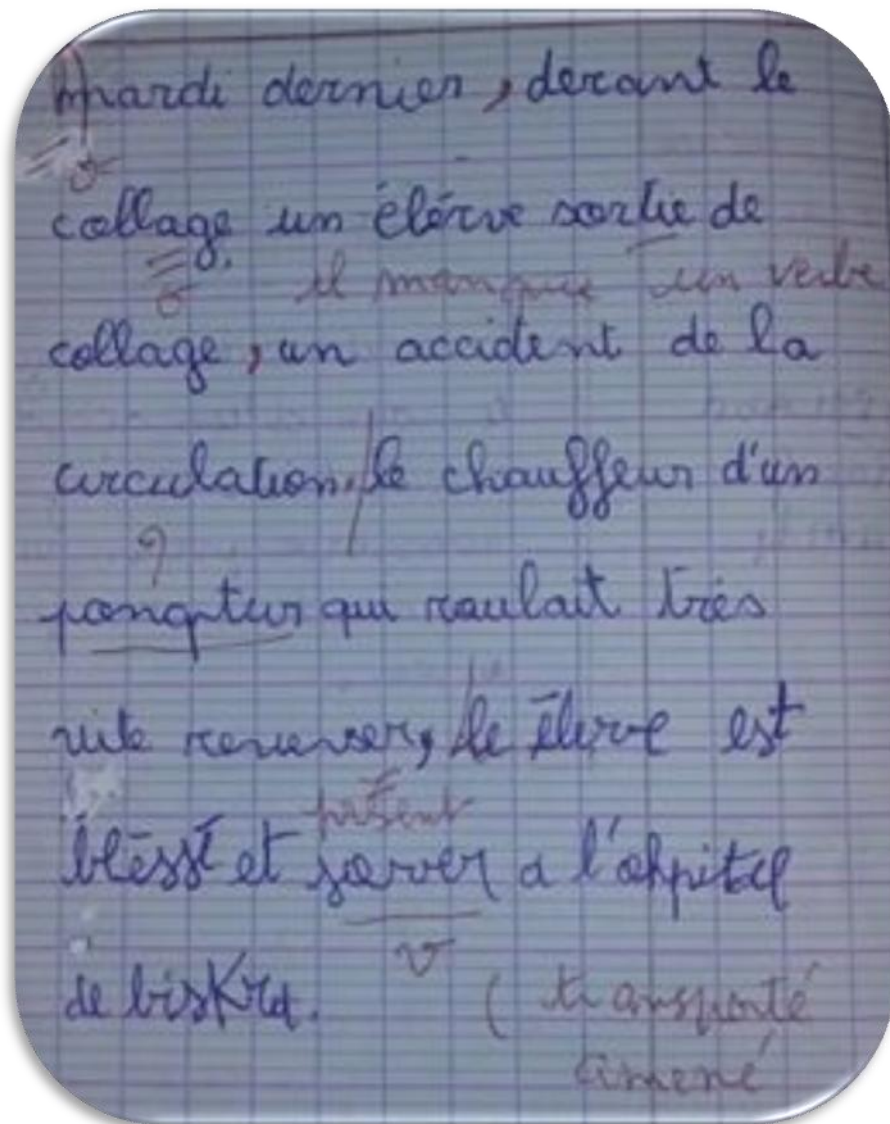 mardi dernier, devant le
σ
collage. un élérve sortie de
σ il manque un verbe
collage, un accident de la
circulation. le chauffeur d'un
?
qui roulait très
vite renverser, le élerve est
présent
bléssé et sarver a l'ohpital
v
de biskra. (transporté
amené